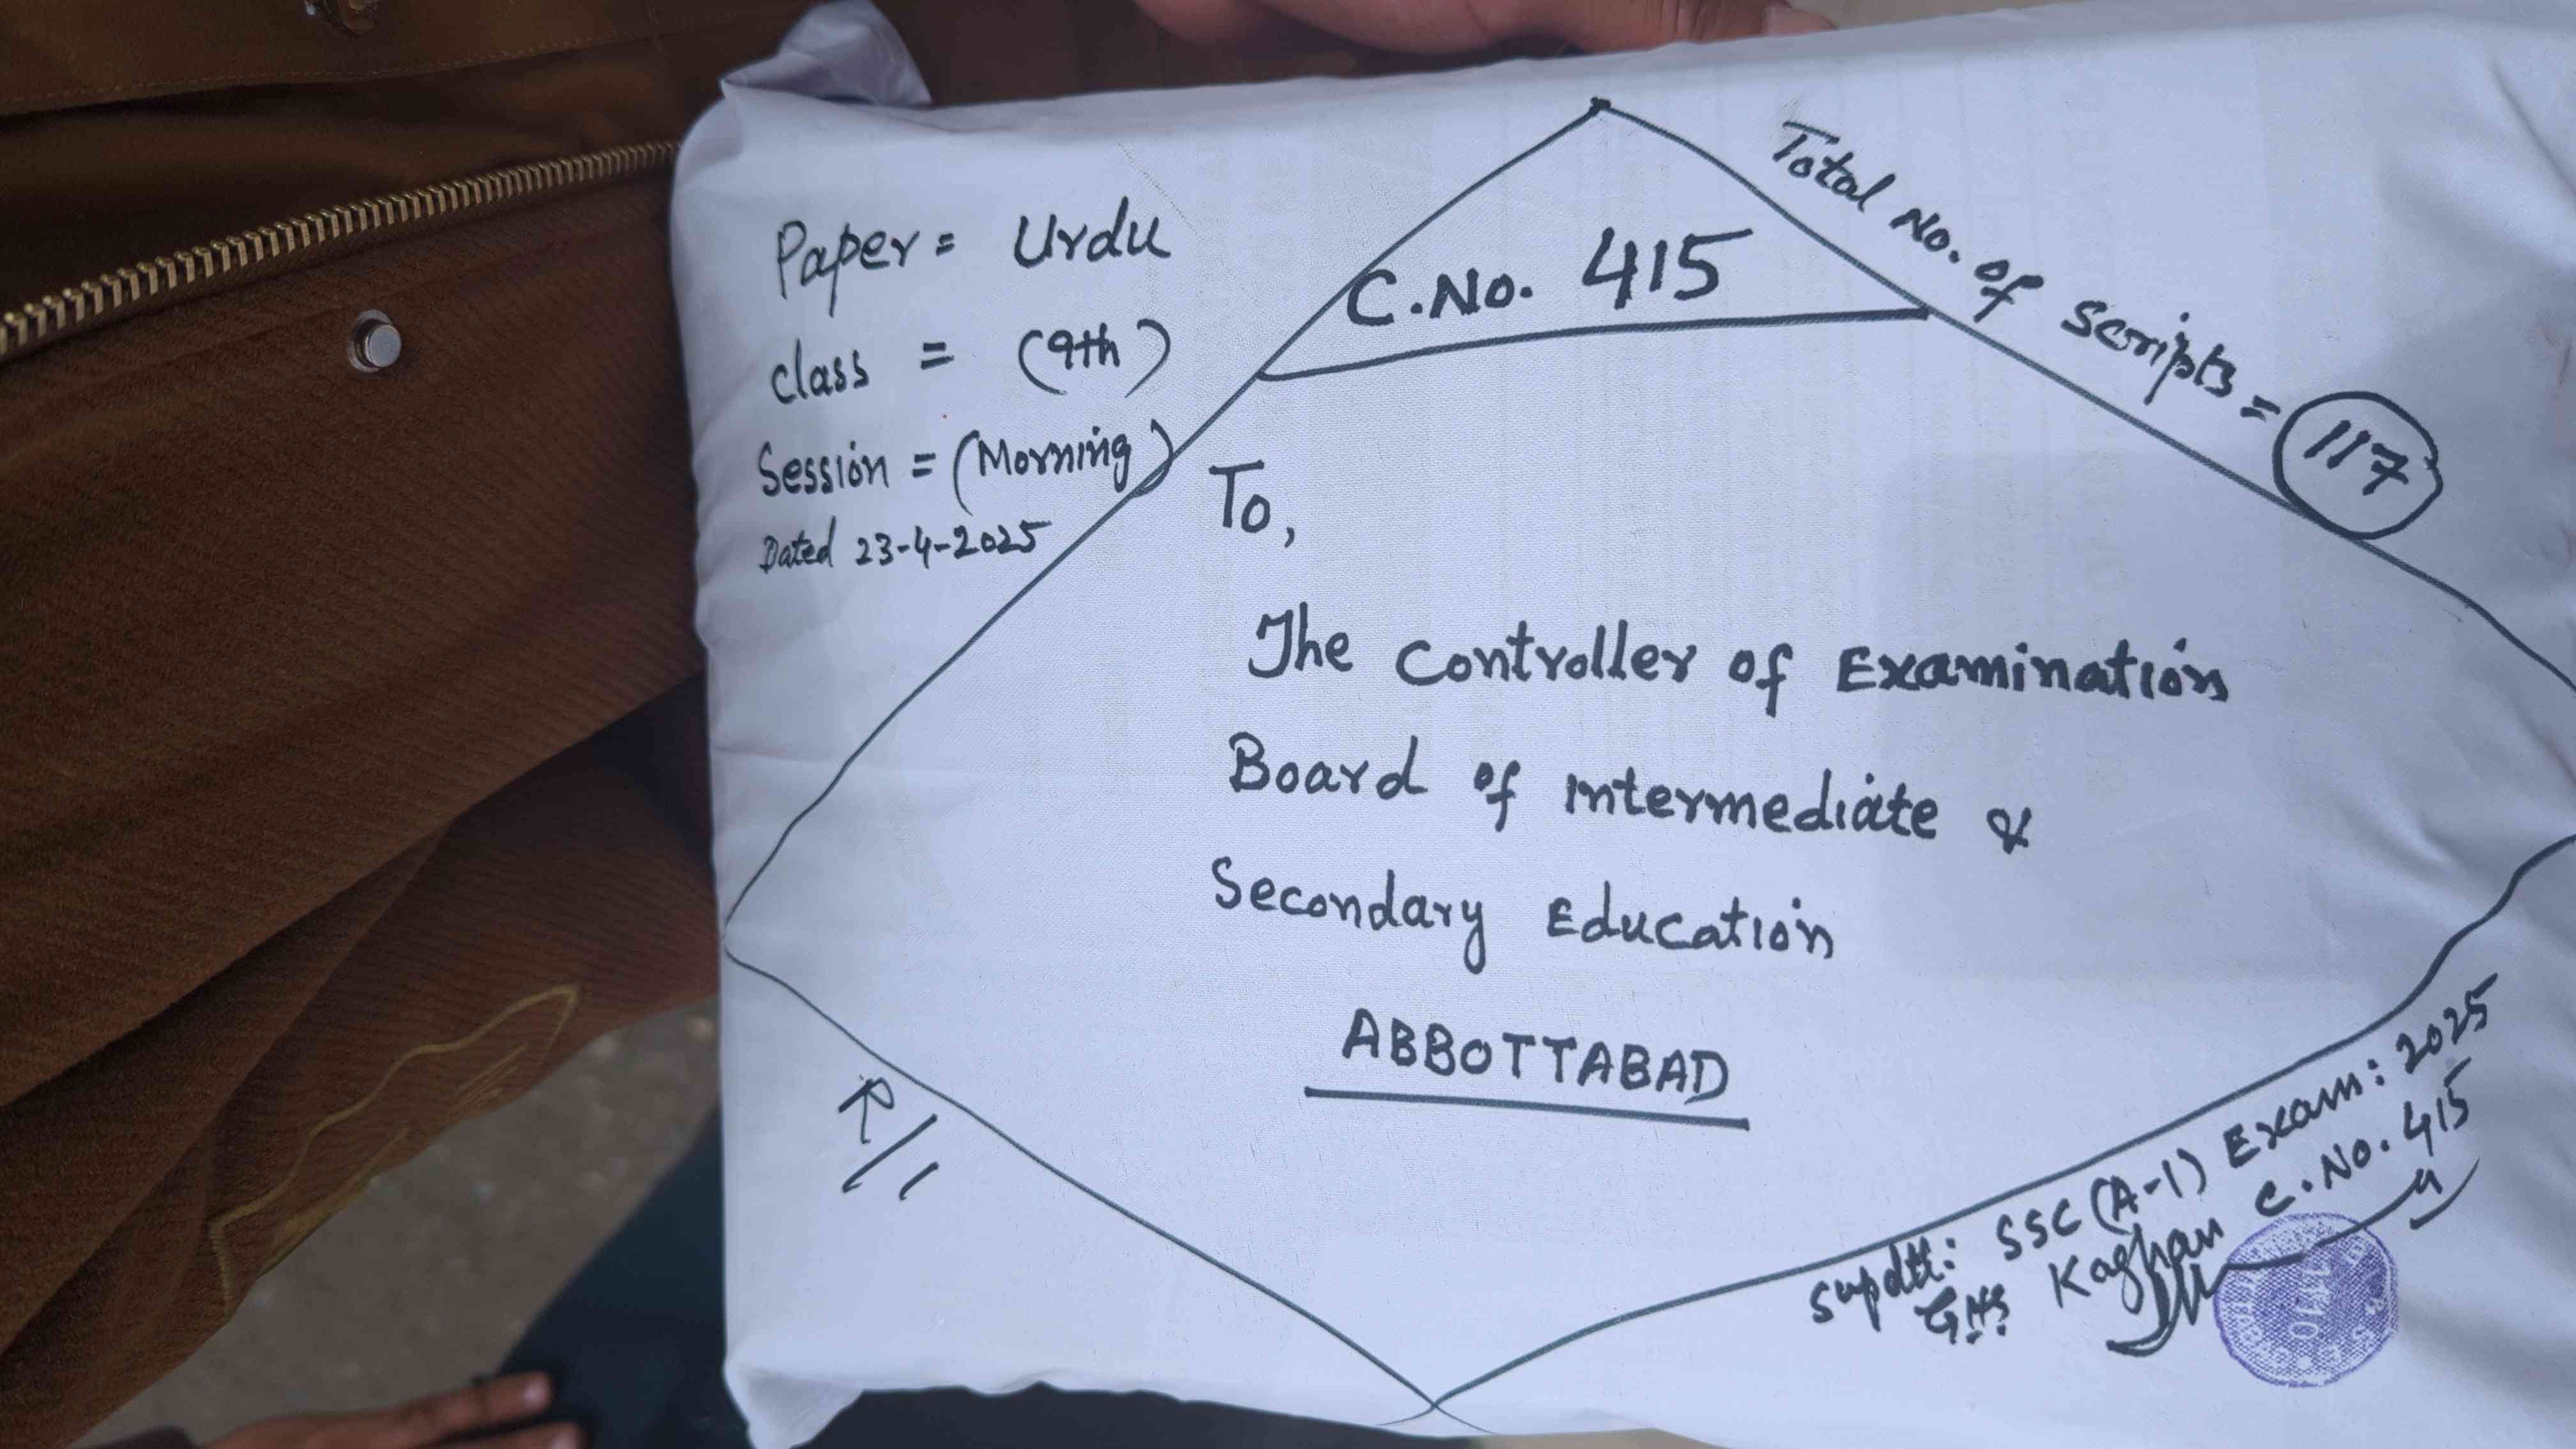 Paper = Urdu
class = (9th)
Session = (Morning)
Dated 23-4-2025
C.No. 415
Total No. of Scripts = 117
To,
The Controller of Examination
Board of Intermediate &
Secondary Education
ABBOTTABAD
R//
Supdtt: SSC (A-1) Exam: 2025
GHS Kaghan C.No. 415